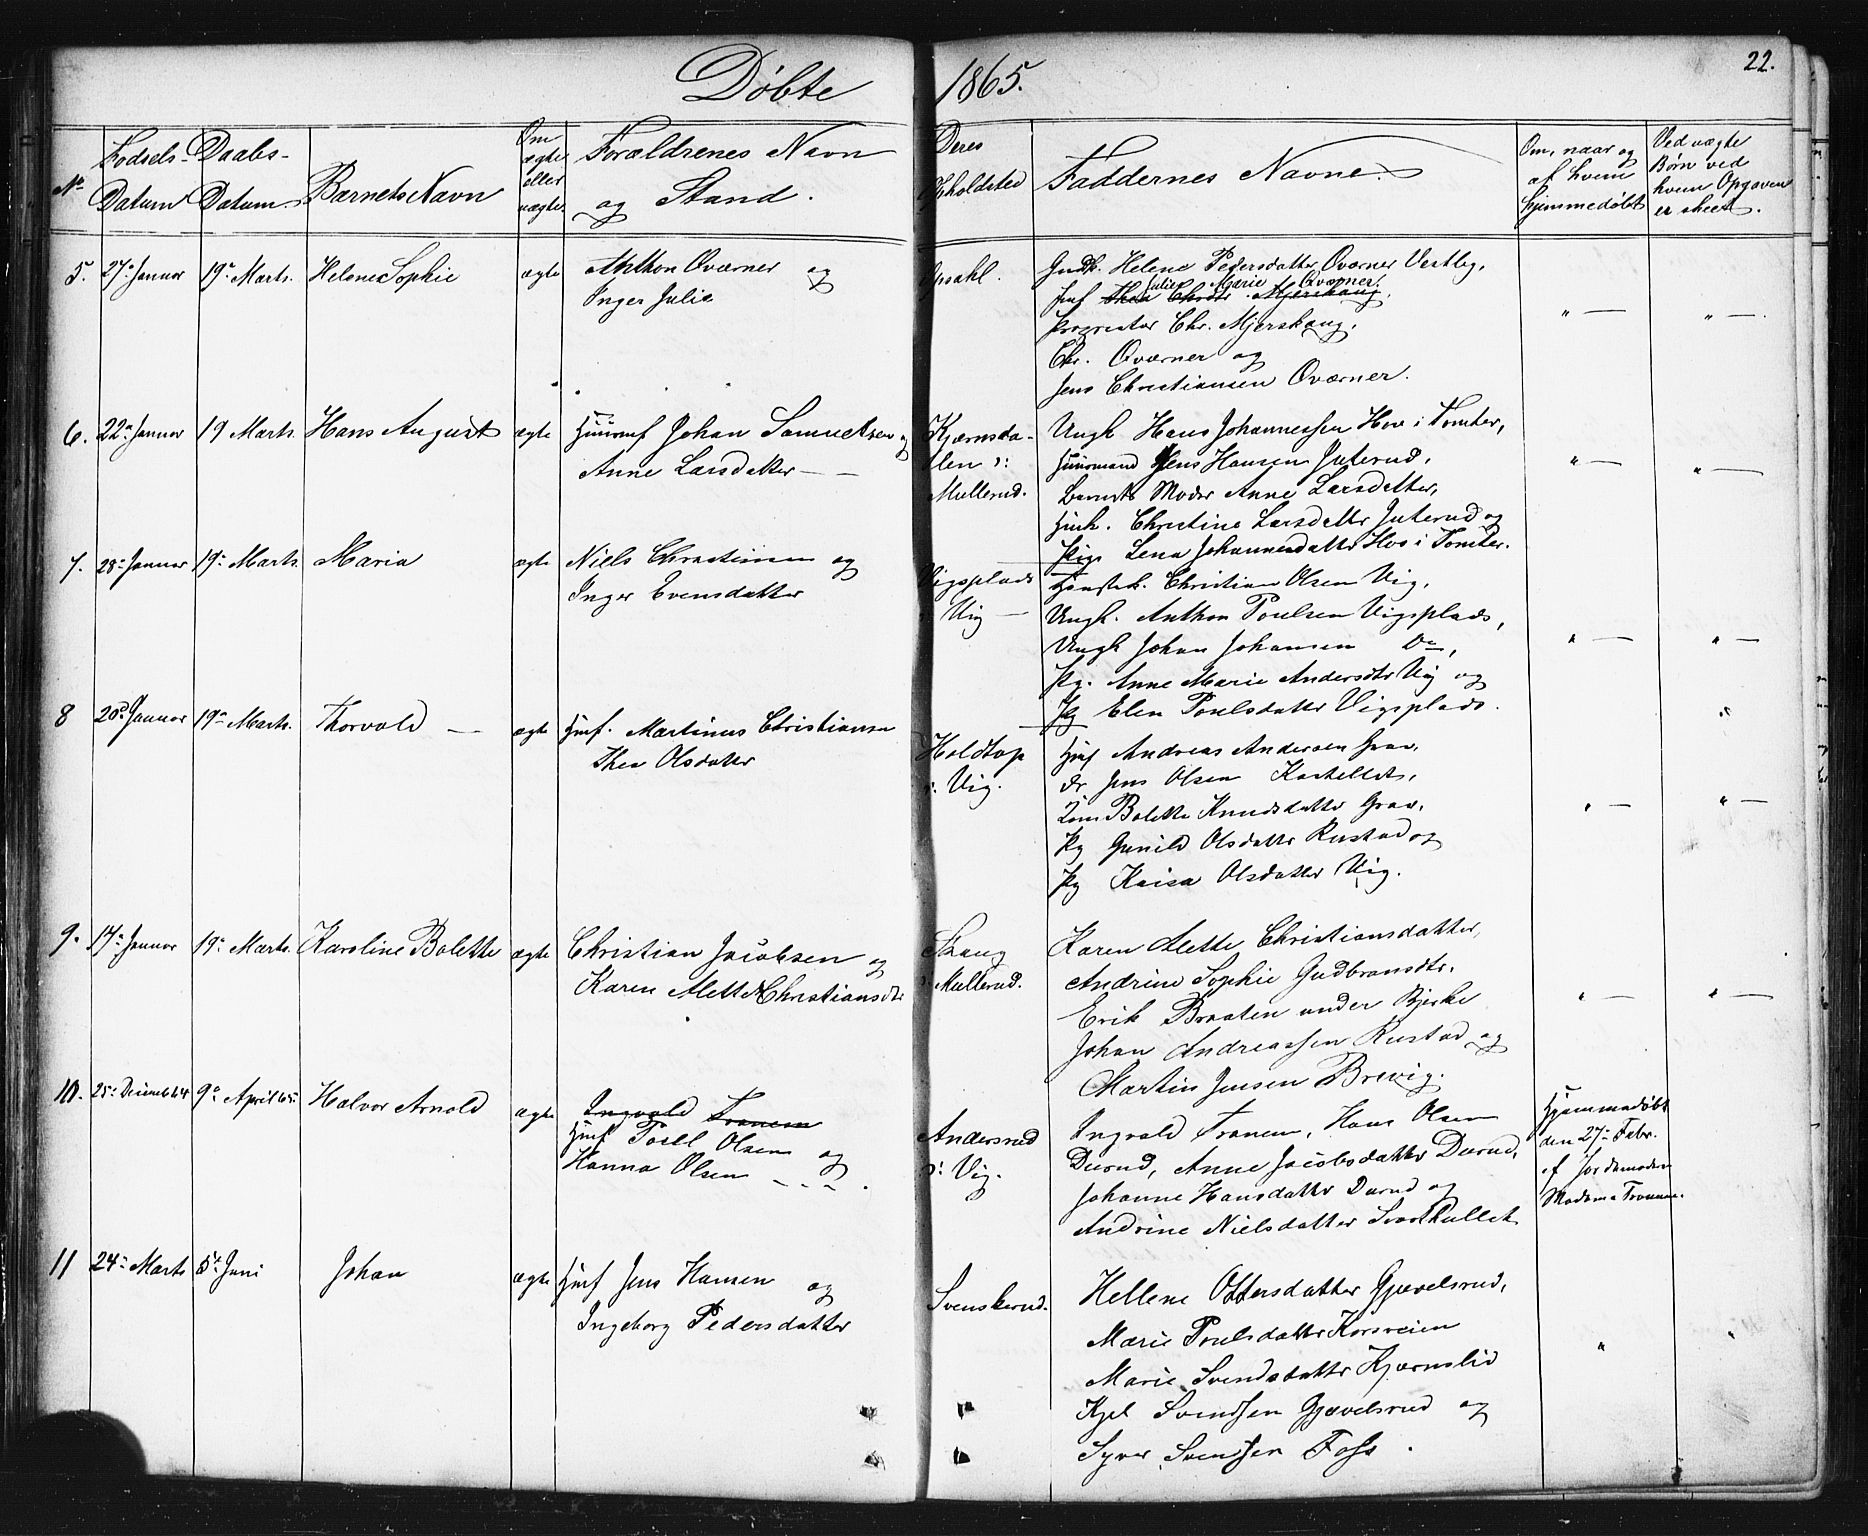 Døbte 1865.
22.
No
Fødsels-
Datum
Daabs-
Datum
Barnets Navn
Om
ægte
eller
uægte.
Forældrenes Navn
og Stand.
Deres
Opholdsted
Faddernes Navne.
Om, naar og
af hvem
hjemmedøbt
Ved uægte
Børn ved
hvem Opgaven
er skeet.
5. 27. Januar 19. Marts. Helene Sophie ægte Anthon Qværner og
Inger Julie
Opsahl.
Gudk. Helene Pedersdatter Qværner Vestbg,
Julie Marie Qværner.
Thea Chrdtr. Mjerskaug,
Proprietær Chr. Mjerskaug,
Chr. Qværner og
Jens Christiansen Qværner.
" — " —
6. 22. Januar 19 Marts. Hans August ægte Huusmf Johan Samuelsen og
Anne Larsdatter
Kjærnsda-
len i:
Mullerud.
Ungk. Hans Johannessen Hov i Tomter,
Huusmand Jens Hansen Juterud,
Barnets Moder Anne Larsdatter,
Huusk. Christine Larsdattr Juterud og
Pige Lena Johannesdattr Hov i Tomter.
" — " —
7. 28. Januar 19. Marts. Maria ægte Niels Christiansen og
Inger Evensdatter
Vigsplads
Vig —
Christian Olsen Vig,
Ungk. Anthon Poulsen Vigsplads,
Ungk Johan Johansen Do,
Pg. Anne Marie Andersdtr Vig og
Pg Elen Poulsdatter Vigsplads.
" — " —
8 20. Januar 19. Marts. Thorvald — ægte Huusf. Martinus Christiansen
Thea Olsdatter
Holdtop
i: Vig.
Huusf Andreas Andersen Grav,
do Jens Olsen Kastellet,
Bolette Knudsdattr Grav,
Pg Gunild Olsdattr Rustad og
Pg Kaisa Olsdatter Vig.
" — " —
9. 14. Januar 19. Marts. Karoline Bolette ægte Christian Jacobsen og
Karen Alette Christiansdtr
Skaug
i: Mullerud.
Karen Alette Christiansdatter,
Andrine Sophie Gudbransdtr,
Erik Braaten under Bjerke
Johan Andreassen Rustad og
Martin Jensen Brevig.
" — " —
10. 25. Decemb. 64 9. April 65. Halvor Arnold ægte Ingvald Tronem
Huusf Poul Olsen og
Hanna Olsen
Andersrud
i: Vig.
Ingvald Tronem, Hans Olsen
Durud, Anne Jacobsdatter Durud,
Johanne Hansdatter Durud og
Andrine Nielsdatter Svartkullet
Hjemmedøbt
den 27. Febr.
af Jordemoder
Madame Tronem.
11 24. Marts 5. Juni Johan ægte Huusf Jens Hansen og
Ingeborg Pedersdatter
Svenskerud.
Hellene Ottersdatter Gjævelsrud,
Marie Poulsdatter Korsveien
Marie Svendsdatter Kjærnslid
Kjel Svendsen Gjævelsrud og
Syver Svendsen Foss.
" "